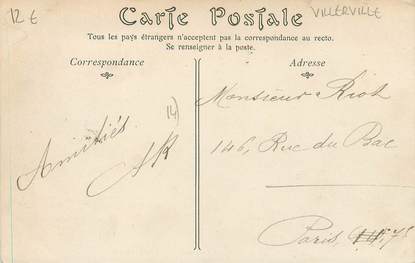 12 €
VILLERVILLE
Carte Postale
Tous les pays étrangers n'acceptent pas la correspondance au recto.
Se renseigner à la poste.
Correspondance
Adresse
14)
Amitiés
AR
Monsieur Riot
146, Rue du Bac
Paris, 7e